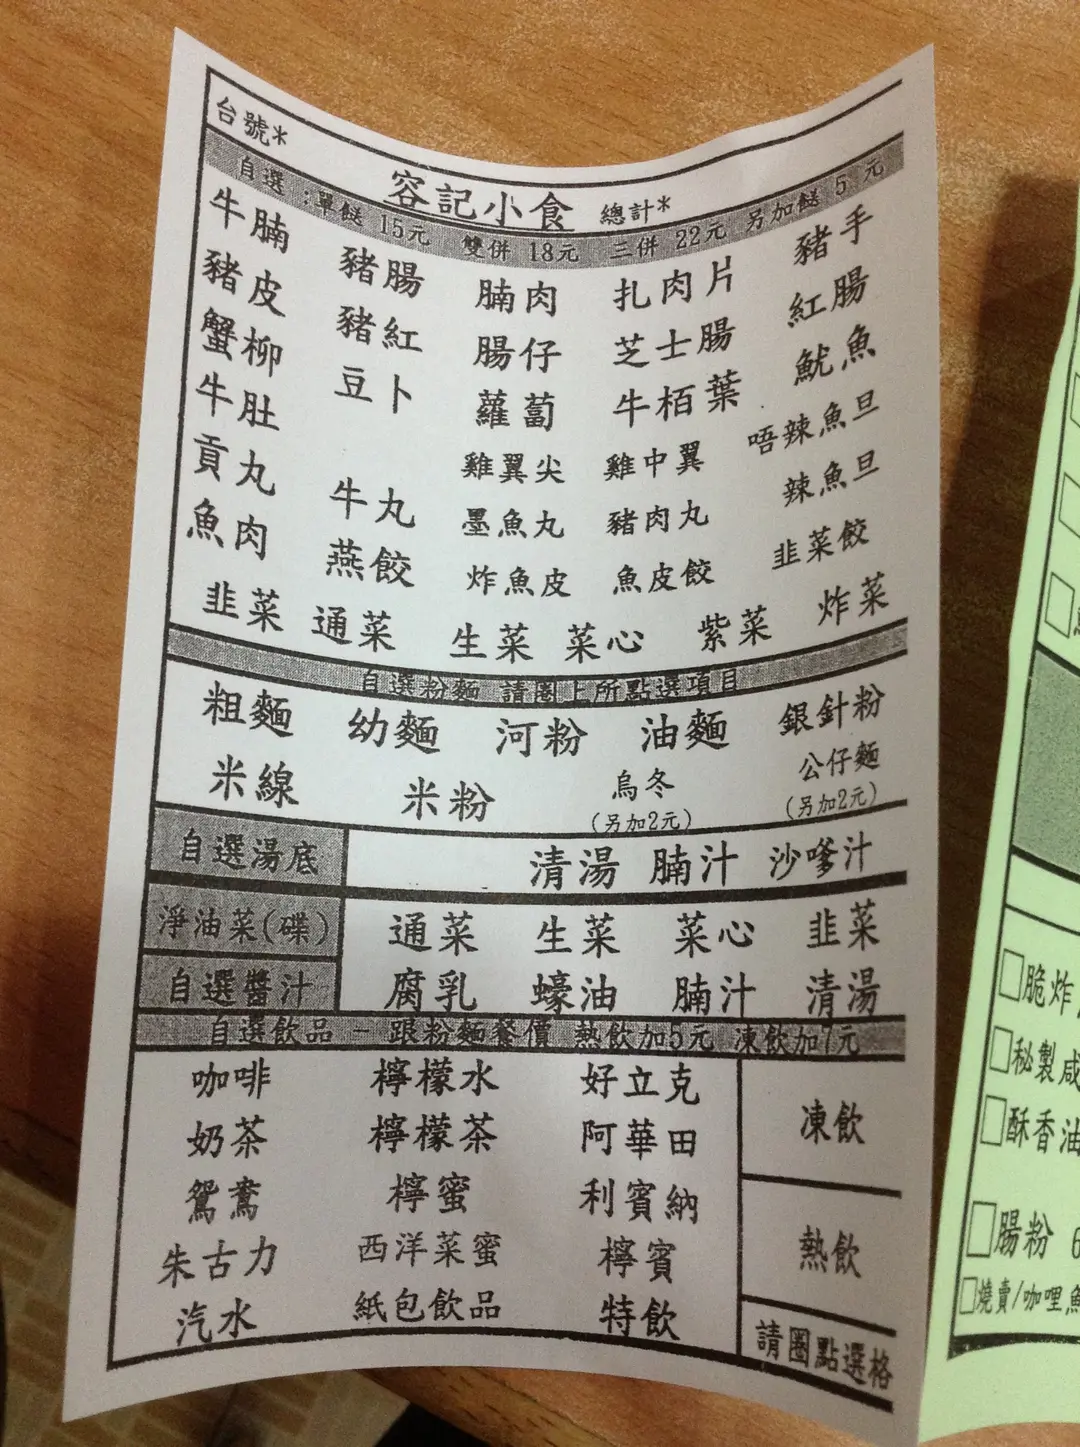 台號*
容記小食 總計*
自選:單餸 15元 雙併 18元 三併 22元 另加餸 5 元
牛腩 豬腸 腩肉 扎肉片 豬手
豬皮 豬紅 腸仔 芝士腸 紅腸
蟹柳 豆卜 蘿蔔 牛栢葉 魷魚
牛肚 雞翼尖 雞中翼 唔辣魚旦
貢丸 牛丸 墨魚丸 豬肉丸 辣魚旦
魚肉 燕餃 炸魚皮 魚皮餃 韭菜餃
韭菜 通菜 生菜 菜心 紫菜 炸菜
自選粉麵 請圈上所點選項目
粗麵 幼麵 河粉 油麵 銀針粉
米線 米粉 烏冬 公仔麵
(另加2元) (另加2元)
自選湯底 清湯 腩汁 沙嗲汁
淨油菜(碟) 通菜 生菜 菜心 韭菜
自選醬汁 腐乳 蠔油 腩汁 清湯
自選飲品 - 跟粉麵餐價 熱飲加5元 凍飲加7元
咖啡 檸檬水 好立克
奶茶 檸檬茶 阿華田 凍飲
鴛鴦 檸蜜 利賓納
朱古力 西洋菜蜜 檸賓 熱飲
汽水 紙包飲品 特飲
請圈點選格
脆炸
秘製咸
酥香油
腸粉 6
燒賣/咖哩魚